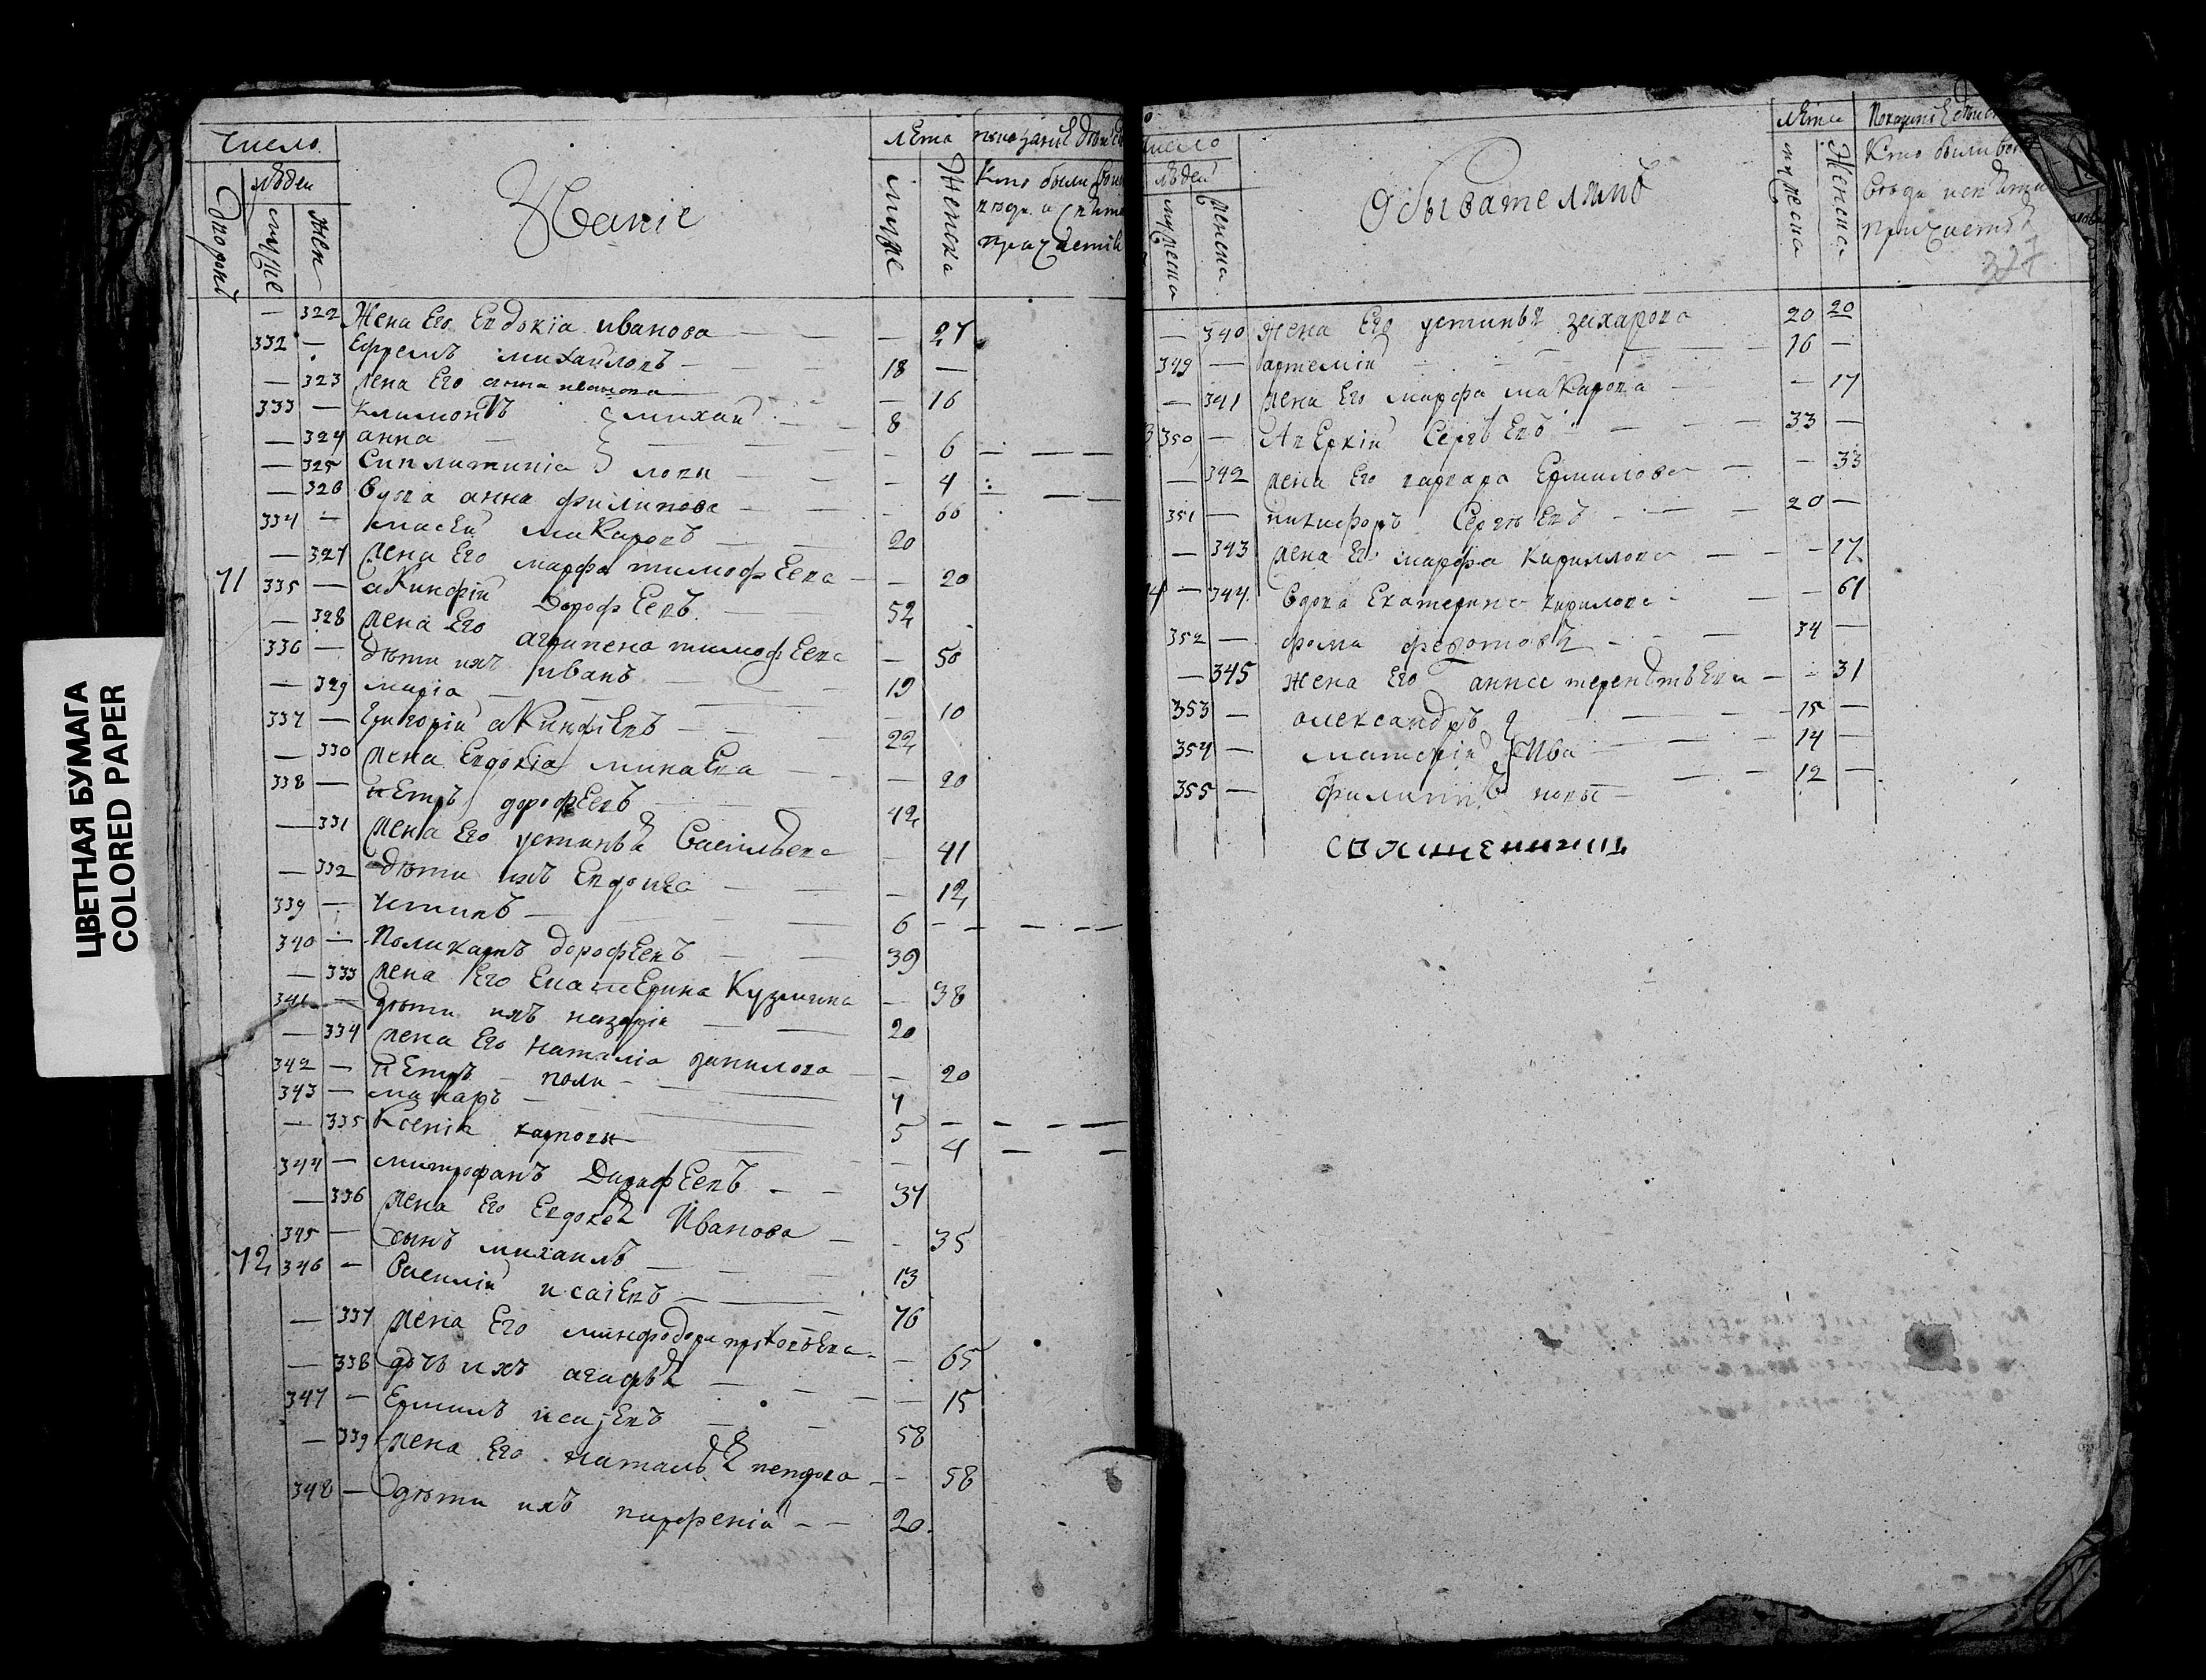 ЦВЕТНАЯ БУМАГА
COLORED PAPER
Число
людеи
муже
жен
Званіе
лета
муже
Женска
Кто были
322 Жена Его Евдокіа иванова 27
332 Ефремъ михаиловъ 18
323 жена Его анна иванова 16
333 климонтъ михаи 8
324 анна 6
325 Синклитикіа ловы 4
326 Вдова анна филипова 60
334 Макаровъ 20
327 жена Его марфа тимофЕева 20
71 335 акинфіи ДорофЕевъ 52
328 жена Его агрипена тимофЕева 50
336 дѣти ихъ иванъ 19
329 маріа 10
337 григоріи акинфіЕвъ 22
330 жена Евдокіа минаЕва 20
338 пЕтръ дорофЕевъ 42
331 жена Его устинья Василвева 41
332 дѣти ихъ Евдокіа 12
339 устинъ 6
340 Поликарпъ дорофЕевъ 39
333 жена Его ЕкатЕрина Кузмина 38
341 дѣти ихъ назаріи 20
334 жена Его наталіа данилова 20
342 пЕтръ поли 7
343 макаръ 5
335 Ксеніа карповы 4
344 митрофанъ ДарафЕевъ 37
336 жена Его Евдокея Иванова 35
345 сынъ михаилъ 13
72 346 Василіи исаіЕвъ 76
337 жена Его минфодора прокопьЕва 65
338 дочь ихъ агафья 15
347 Ермилъ исаіЕвъ 58
339 жена Его наталья петрова 58
348 дѣти ихъ парфеніи 20
Число
людеи
мужеска
женска
Обывателямъ
лѣта
мужеска
Женска
Кто были
377
340 жена Его устинья захарова 20 20
349 артеміи 16
341 жена Его марфа макарова 17
350 АвЕркіи СергѣЕвъ 33
342 жена Его варвара Ермилова 33
351 никифоръ СергѣЕвъ 20
343 жена Его марфа Кирилова 17
344 Вдова Екатерина кирилова 61
352 фома федотовъ 34
345 жена Его анисе терентьЕва 31
353 александръ 15
354 матфіи Ива 14
355 филиппъ новы 12